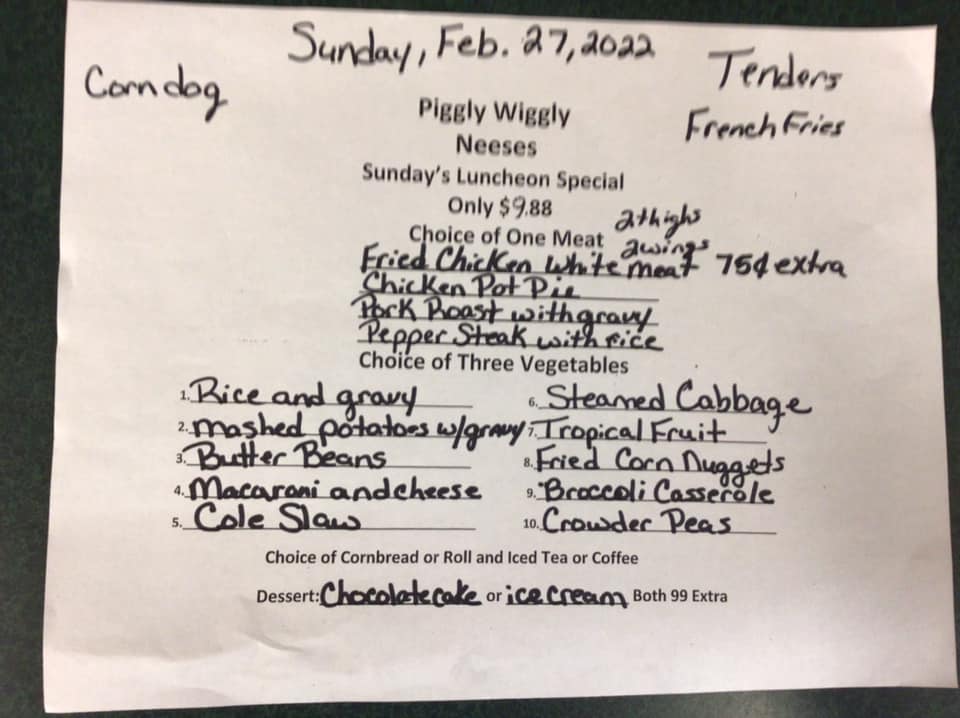 Sunday, Feb. 27, 2022
Corndog
Tenders
French Fries
Piggly Wiggly
Neeses
Sunday's Luncheon Special
Only $9.88
2 thighs
Choice of One Meat 2 wings
Fried Chicken White meat 75¢ extra
Chicken Pot Pie
Pork Roast with gravy
Pepper Steak with rice
Choice of Three Vegetables
1. Rice and gravy 6. Steamed Cabbage
2. mashed potatoes w/gravy 7. Tropical Fruit
3. Butter Beans 8. Fried Corn Nuggets
4. Macaroni and cheese 9. Broccoli Casserole
5. Cole Slaw 10. Crowder Peas
Choice of Cornbread or Roll and Iced Tea or Coffee
Dessert: Chocolate cake or ice cream Both 99 Extra